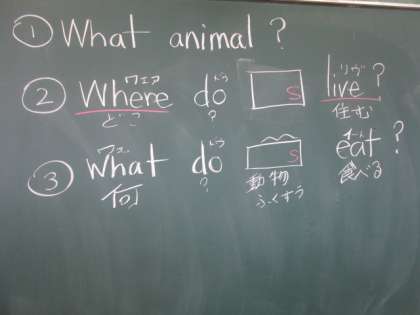 ① What animal ?
ウェア ドゥ リヴ
② Where do s live ?
どこ ? 住む
ドゥ イート
③ What do s eat ?
何 ? 動物 食べる
ふくすう